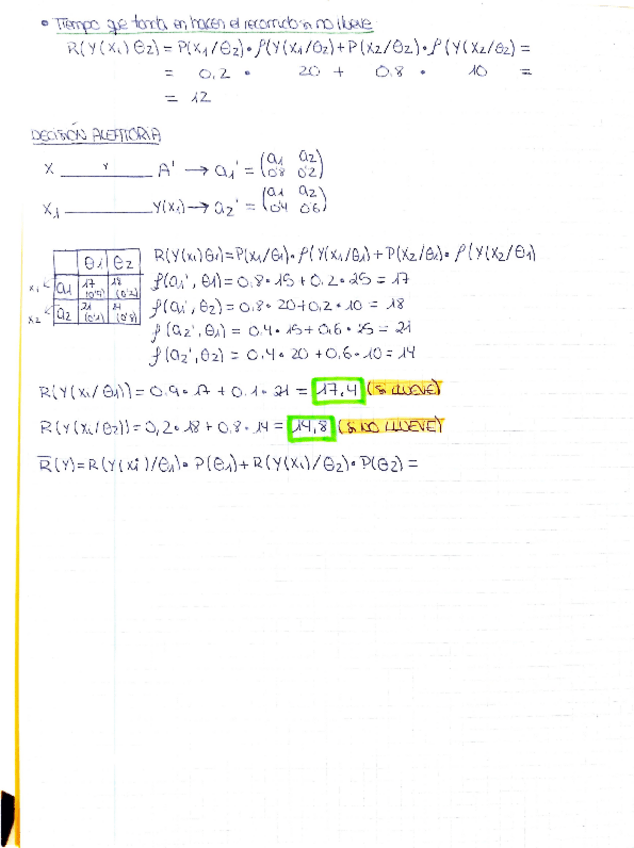 • Tiempo que tarda en hacer el recorrido si no llueve
R(Y(x₁) θ2) = P(x₁/θ2) • ρ(Y(x₁/θ2) + P(x2/θ2) • ρ(Y(x2/θ2) =
= 0,2 • 20 + 0.8 • 10 =
= 12
DECISIÓN ALEATORIA
X ——— Y ——— A' → a₁' = (a1 a2 / 0'8 0'2)
X₁ ——— Y(x₁) → a₂' = (a1 a2 / 0'4 0'6)
θ1 θ2
x₁ a1 17 (0'9) 18 (0'2)
x2 a2 21 (0'1) 14 (0'8)
R(Y(x₁) θ1) = P(x₁/θ1) • ρ(Y(x₁/θ1) + P(x2/θ1) • ρ(Y(x2/θ1)
ρ(a₁', θ1) = 0,8 • 15 + 0,2 • 25 = 17
ρ(a₁', θ2) = 0,8 • 20 + 0,2 • 10 = 18
ρ(a2', θ1) = 0,4 • 15 + 0,6 • 25 = 21
ρ(a2', θ2) = 0,4 • 20 + 0,6 • 10 = 14
R(Y(x₁/θ1)) = 0,9 • 17 + 0,1 • 21 = 17,4 (SI LLUEVE)
R(Y(x₁/θ2)) = 0,2 • 18 + 0,8 • 14 = 14,8 (SI NO LLUEVE)
R̅(Y) = R(Y(xi)/θ1) • P(θ1) + R(Y(x₁)/θ2) • P(θ2) =